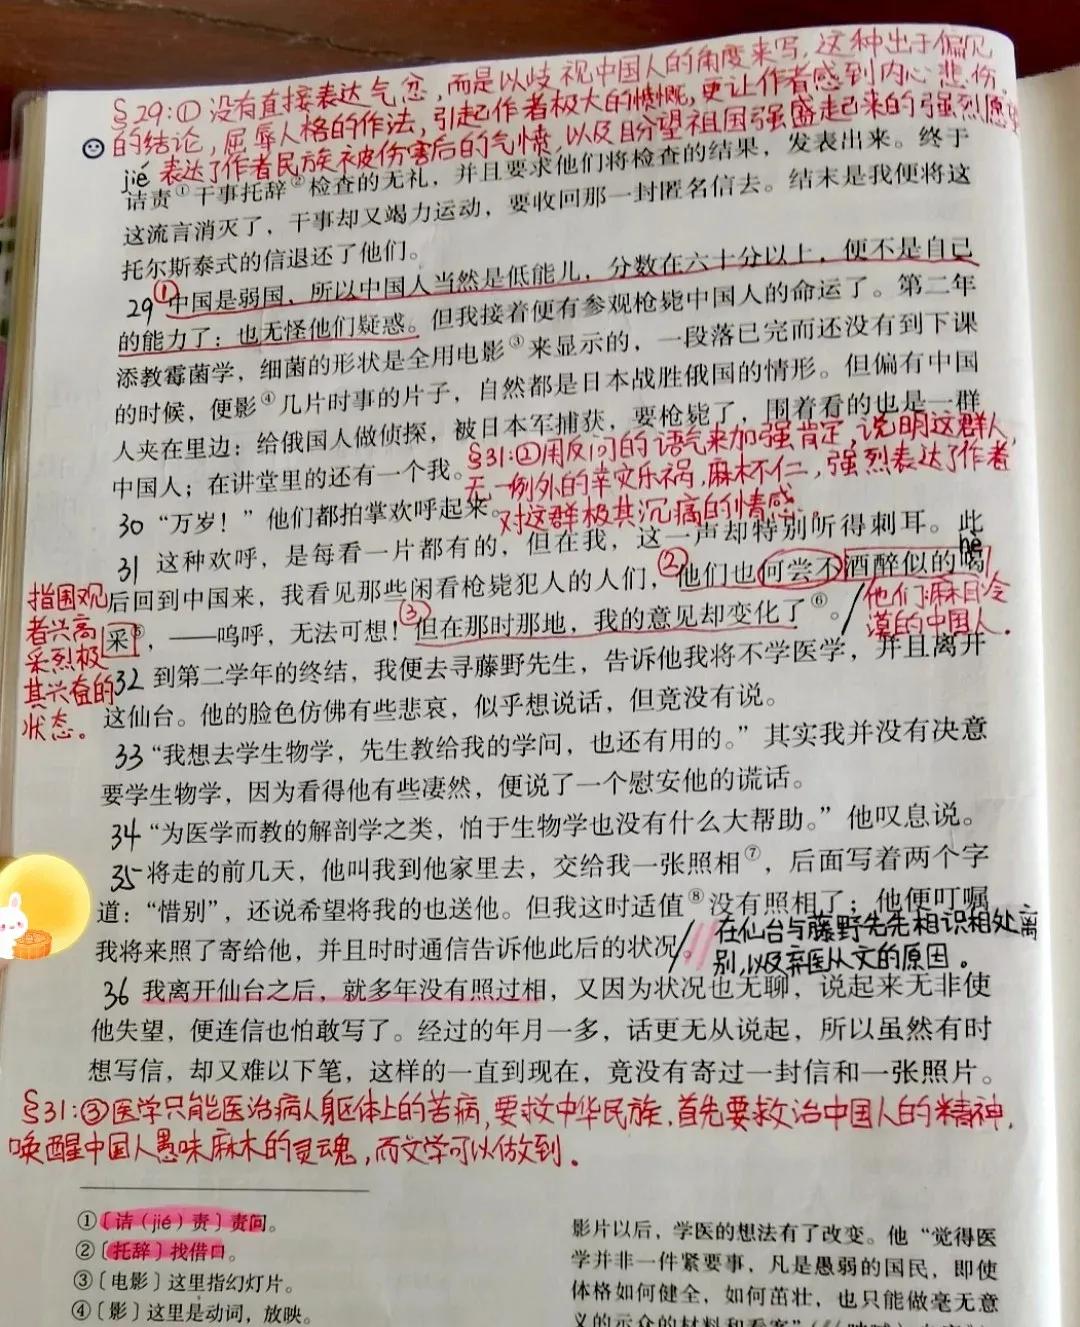 §29:①没有直接表达气忿，而是以歧视中国人的角度来写，这种出于偏见
的结论，屈辱人格的作法，引起作者极大的愤慨，更让作者感到内心悲伤。
表达了作者民族被伤害后的气愤，以及盼望祖国强盛起来的强烈愿望
jié
诘责①干事托辞②检查的无礼，并且要求他们将检查的结果，发表出来。终于
这流言消灭了，干事却又竭力运动，要收回那一封匿名信去。结末是我便将这
托尔斯泰式的信退还了他们。
29 ①中国是弱国，所以中国人当然是低能儿，分数在六十分以上，便不是自己
的能力了：也无怪他们疑惑。但我接着便有参观枪毙中国人的命运了。第二年
添教霉菌学，细菌的形状是全用电影③来显示的，一段落已完而还没有到下课
的时候，便影④几片时事的片子，自然都是日本战胜俄国的情形。但偏有中国
人夹在里边：给俄国人做侦探，被日本军捕获，要枪毙了，围着看的也是一群
中国人；在讲堂里的还有一个我。
§31:②用反问的语气来加强肯定，说明这群人，
无一例外的幸灾乐祸，麻木不仁，强烈表达了作者
对这群极其沉痛的情感.
30 “万岁！”他们都拍掌欢呼起来。
31 这种欢呼，是每看一片都有的，但在我，这一声却特别听得刺耳。此
hè
后回到中国来，我看见那些闲看枪毙犯人的人们，②他们也何尝不酒醉似的喝
采⑤，——呜呼，无法可想！③但在那时那地，我的意见却变化了⑥。
他们：麻目冷
漠的中国人.
指围观
者兴高
采烈极
其兴奋的
状态。
32 到第二学年的终结，我便去寻藤野先生，告诉他我将不学医学，并且离开
这仙台。他的脸色仿佛有些悲哀，似乎想说话，但竟没有说。
33 “我想去学生物学，先生教给我的学问，也还有用的。”其实我并没有决意
要学生物学，因为看得他有些凄然，便说了一个慰安他的谎话。
34 “为医学而教的解剖学之类，怕于生物学也没有什么大帮助。”他叹息说。
35 将走的前几天，他叫我到他家里去，交给我一张照相⑦，后面写着两个字
道：“惜别”，还说希望将我的也送他。但我这时适值⑧没有照相了；他便叮嘱
我将来照了寄给他，并且时时通信告诉他此后的状况。
在仙台与藤野先先相识相处离
别，以及弃医从文的原因。
36 我离开仙台之后，就多年没有照过相，又因为状况也无聊，说起来无非使
他失望，便连信也怕敢写了。经过的年月一多，话更无从说起，所以虽然有时
想写信，却又难以下笔，这样的一直到现在，竟没有寄过一封信和一张照片。
§31:③医学只能医治病人躯体上的苦病，要救中华民族，首先要救治中国人的精神，
唤醒中国人愚昧麻木的灵魂，而文学可以做到.
①〔诘（jié）责〕责问。
②〔托辞〕找借口。
③〔电影〕这里指幻灯片。
④〔影〕这里是动词，放映。
影片以后，学医的想法有了改变。他“觉得医
学并非一件紧要事，凡是愚弱的国民，即使
体格如何健全，如何茁壮，也只能做毫无意
义的示众的材料和看客”